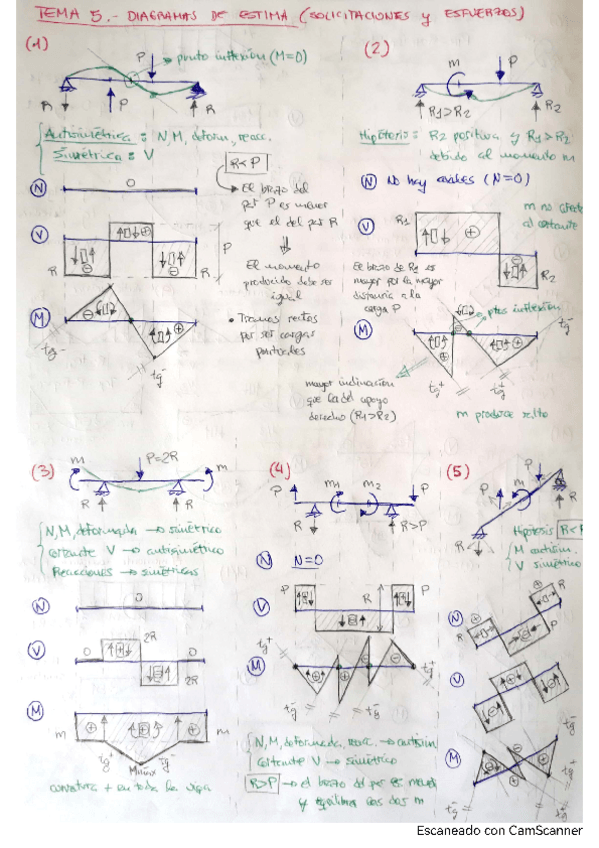 TEMA 5.- DIAGRAMAS DE ESTIMA (SOLICITACIONES y ESFUERZOS)
(1)
P
punto inflexión (M=0)
R
P
R
Antisimétrica: N, M, deform, reacc.
Simétrica: V
R<P
N
0
El brazo del
par P es menor
que el del par R
V
R
R
P
El momento
producido debe ser
igual
M
tg-
tg-
• Tramos rectos
por ser cargas
puntuales
(2)
m
P
R1>R2
R2
Hipótesis: R2 positiva y R1>R2
debido al momento m
N No hay axiles (N=0)
m no afecta
al cortante
V
R1
R2
El brazo de R2 es
mayor por la mayor
distancia a la
carga P
M
ptos inflexión
tg-
tg+
tg+
mayor inclinación
que la del apoyo
derecho (R1>R2)
m produce salto
(3)
m
P=2R
m
R
R
N, M, deformada → simétrico
Cortante V → antisimétrico
Reacciones → simétricas
N
0
V
0
2R
0
2R
M
m
m
tg+
Mmax
tg-
curvatura + en toda la viga
(4)
P
m1
m2
P
R
R>P
N
N=0
V
P
R
P
M
tg+
tg-
tg-
tg-
N, M, deformada, reacc. → antisim
Cortante V → simétrico
R>P → el brazo del par es menor
y equilibra los dos m
(5)
P
m
P
R
R
Hipótesis R<P
M antisim.
V simétrico
N
R
R
P
V
M
tg-
tg+
tg-
Escaneado con CamScanner